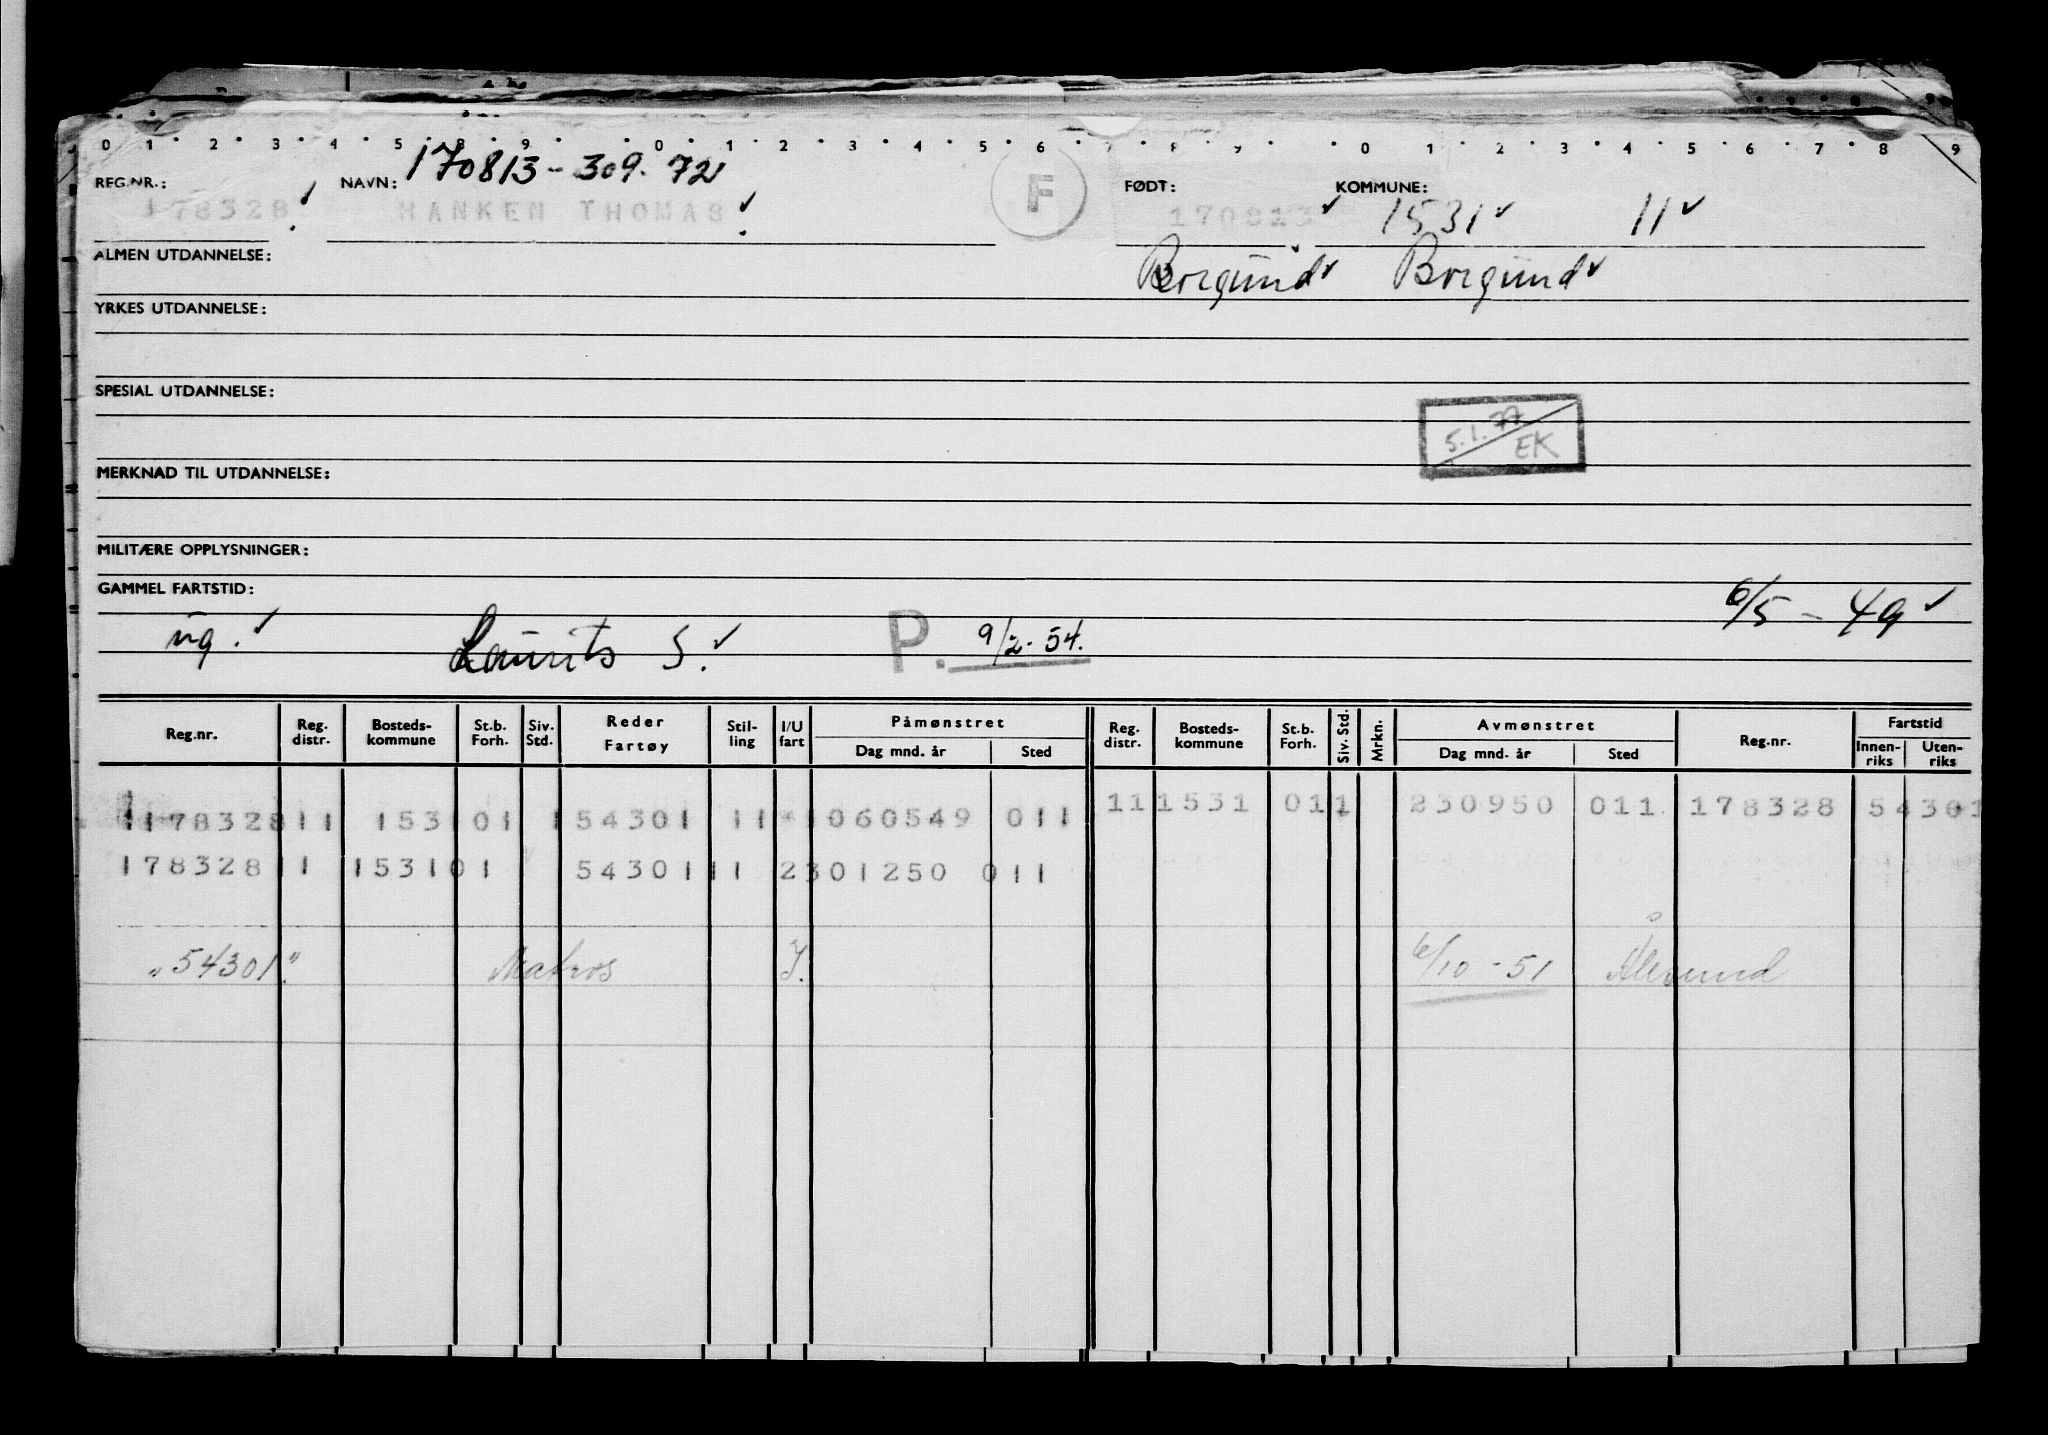 0 1 2 3 4 5 8 9 0 1 2 3 4 5 6 7 8 9 0 1 2 3 4 5 6 7 8 9
170813-309.72
REG.NR.: NAVN: F FØDT: KOMMUNE:
178328 HANKEN THOMAS 170813 1531 11
ALMEN UTDANNELSE: Borgund Borgund
YRKES UTDANNELSE:
SPESIAL UTDANNELSE:
5.1.77
EK
MERKNAD TIL UTDANNELSE:
MILITÆRE OPPLYSNINGER:
GAMMEL FARTSTID: 6/5 - 49
ug. Laurits S. P. 9/2-54.
Reg.nr. Reg. distr. Bosteds-kommune St.b. Forh. Siv. Std. Reder Fartøy Stil-ling I/U fart Påmønstret Dag mnd. år Sted Reg. distr. Bosteds-kommune St.b. Forh. Siv. Std. Mrkn. Avmønstret Dag mnd. år Sted Reg.nr. Fartstid Innen-riks Uten-riks
178328 11 1531 01 1 54301 11 1 060549 011 11 1531 01 1 230950 011 178328 54301
178328 11 1531 01 54301 11 2 301250 011
"54301" Matros I. 6/10 - 51 Ålesund